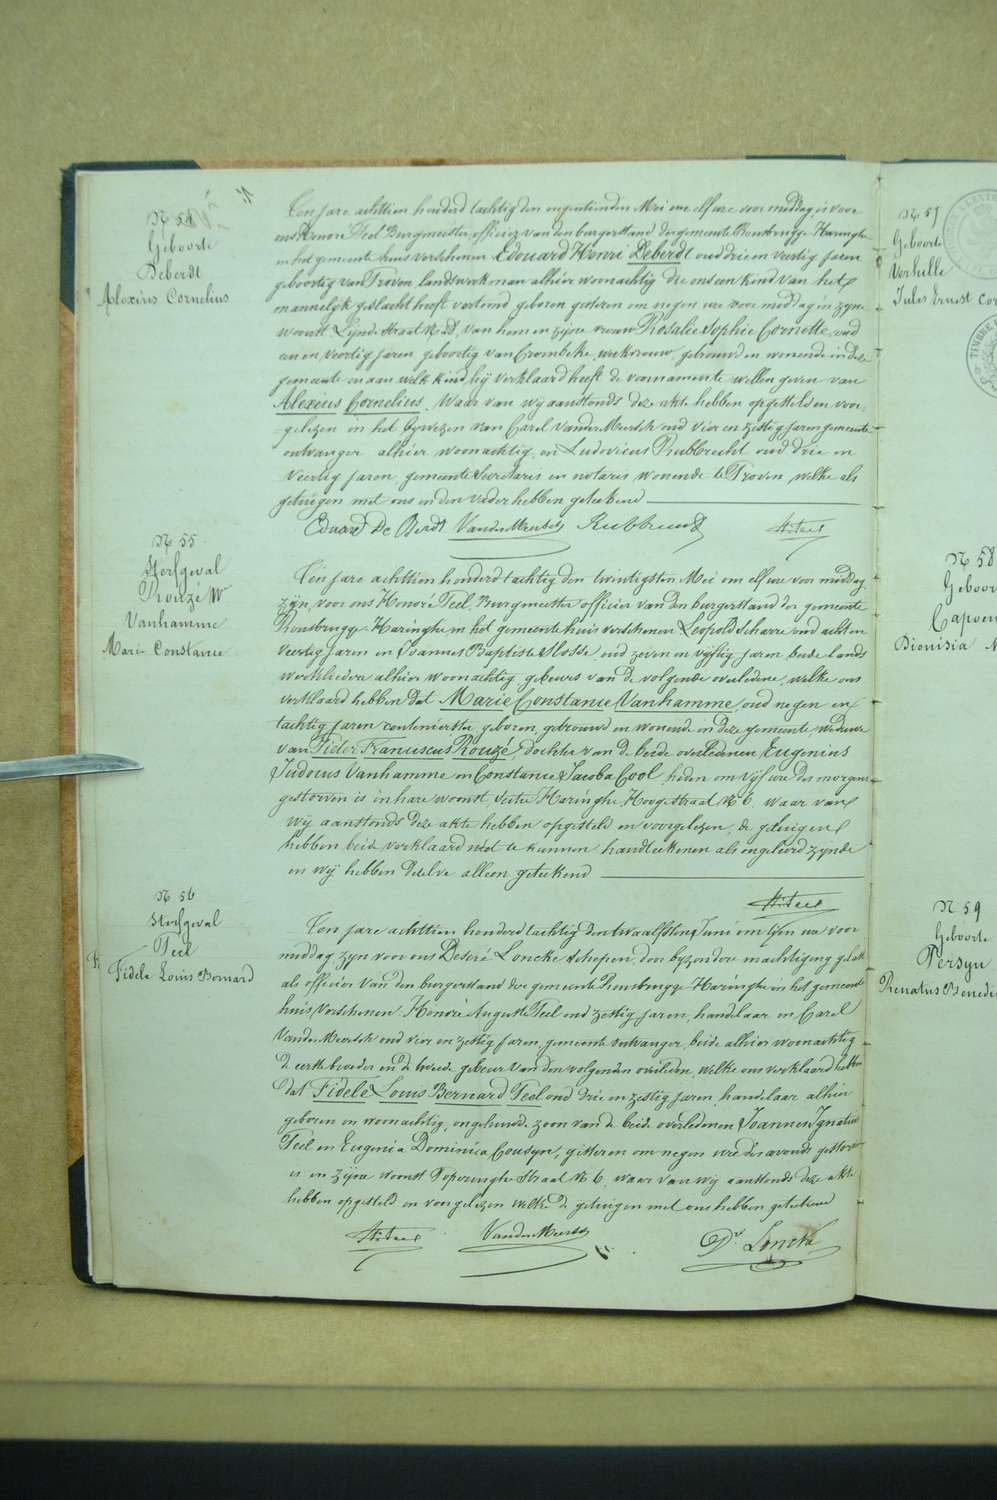 N 54
Geboorte
Deberdt
Alexius Cornelius
Ten jare achttien honderd tachtig den negentienden Mei om elf ure voor middag is voor
ons Honoré Teel Burgmeester officier van den burgerstand der gemeente Rousbrugge-Haringhe
in het gemeente huis verschenen Edouard Henri Deberdt oud drie en veertig jaren
geboortig van Proven landswerkman alhier woonachtig die ons een kind van het
mannelijk geslacht heeft vertoond, geboren gisteren om negen ure voor middag in zijne
woonst Lijnde Straat N 28, van hem en zijne vrouw Rosalie Sophie Cornette, oud
een en veertig jaren geboortig van Crombeke, werkvrouw, gehuwd en wonende in deze
gemeente en aan welk kind hij verklaard heeft de voornamen te willen geven van
Alexius Cornelius. Waar van wij aanstonds deze akte hebben opgesteld en voor-
-gelezen in het bijwezen van Carel VanderMeersch oud vier en zestig jaren gemeente-
ontvanger alhier woonachtig en Ludovicus Rubbrecht oud drie en
veertig jaren, gemeente secretaris en notaris wonende te Proven, welke als
getuigen met ons en den vader hebben geteekend
Eduard De Berdt VanderMeersch Rubbrecht H. Teel
N 55
Sterfgeval
Rouzé W
Vanhamme
Marie Constance
Ten jare achttien honderd tachtig den twintigsten Mei om elf ure voor middag
zijn, voor ons Honoré Teel, Burgmeester officier van den burgerstand der gemeente
Rousbrugge-Haringhe in het gemeente huis verschenen Leopold Scharre oud acht en
veertig jaren en Joannes Baptiste Slosse, oud zeven en vijftig jaren, beide lands
werklieden alhier woonachtig, gebeurs van de volgende overledene, welke ons
verklaard hebben dat Marie Constance Vanhamme, oud negen en
tachtig jaren rentenierster, geboren, gehuwd en wonende in deze gemeente, weduwe
van Fideer Franciscus Rouzé, dochter van de beide overledenen Eugenius
Judocus Vanhamme en Constance Jacoba Cool, heden om vijf ure des morgens
gestorven is in hare woonst, sectie Haringhe Hoogestraat N 6, waar van
wij aanstonds deze akte hebben opgesteld en voorgelezen, de getuigen
hebben beide verklaard niet te kunnen handteekenen als ongeleerd zijnde
en wij hebben dezelve alleen geteekend
H. Teel
N 56
Sterfgeval
Teel
Fidele Louis Bernard
Ten jare achttien honderd tachtig den twaalfsten Juni om tien ure voor
middag, zijn voor ons Desiré Loncke schepen, door bijzondere machtiging gelast
als officier van den burgerstand der gemeente Rousbrugge Haringhe in het gemeente
huis verschenen Henri Auguste Teel oud zestig jaren, handelaar en Carel
VanderMeersch oud vier en zestig jaren, gemeente ontvanger, beide alhier woonachtig
de eerste broeder en de tweede gebeur van den volgenden overleden, welke ons verklaard hebben
dat Fidele Louis Bernard Teel oud drie en zestig jaren, handelaar alhier
geboren en woonachtig, ongehuwde zoon van de beide overledenen Joannes Ignatius
Teel en Eugenia Dominica Cousyn, gisteren om negen ure des avonds gestorven
is in zijne woonst Poperinghe Straat N 6, waar van wij aanstonds deze akte
hebben opgesteld en voorgelezen welke de getuigen met ons hebben geteekend
H. Teel VanderMeersch Dé Loncke
N 57
Geboorte
Verhelle
Jules Ernest Cor
N 58
Geboor
Capoen
Dionisia
N 59
Geboorte
Persyn
Renatus Bened